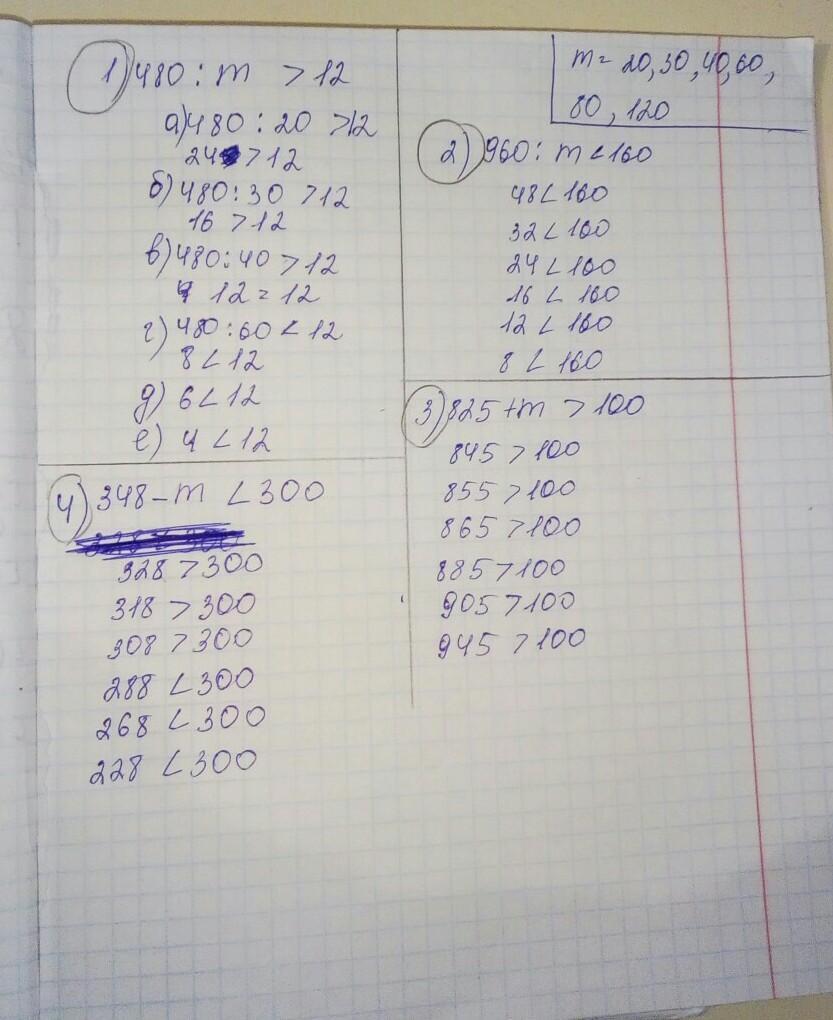 1) 480 : m > 12
а) 480 : 20 > 12
24 > 12
б) 480 : 30 > 12
16 > 12
в) 480 : 40 > 12
12 = 12
г) 480 : 60 < 12
8 < 12
д) 6 < 12
е) 4 < 12
m = 20, 30, 40, 60,
80, 120
2) 960 : m < 160
48 < 160
32 < 160
24 < 160
16 < 160
12 < 160
8 < 160
3) 825 + m > 100
845 > 100
855 > 100
865 > 100
885 > 100
905 > 100
945 > 100
4) 348 - m < 300
328 > 300
318 > 300
308 > 300
288 < 300
268 < 300
228 < 300